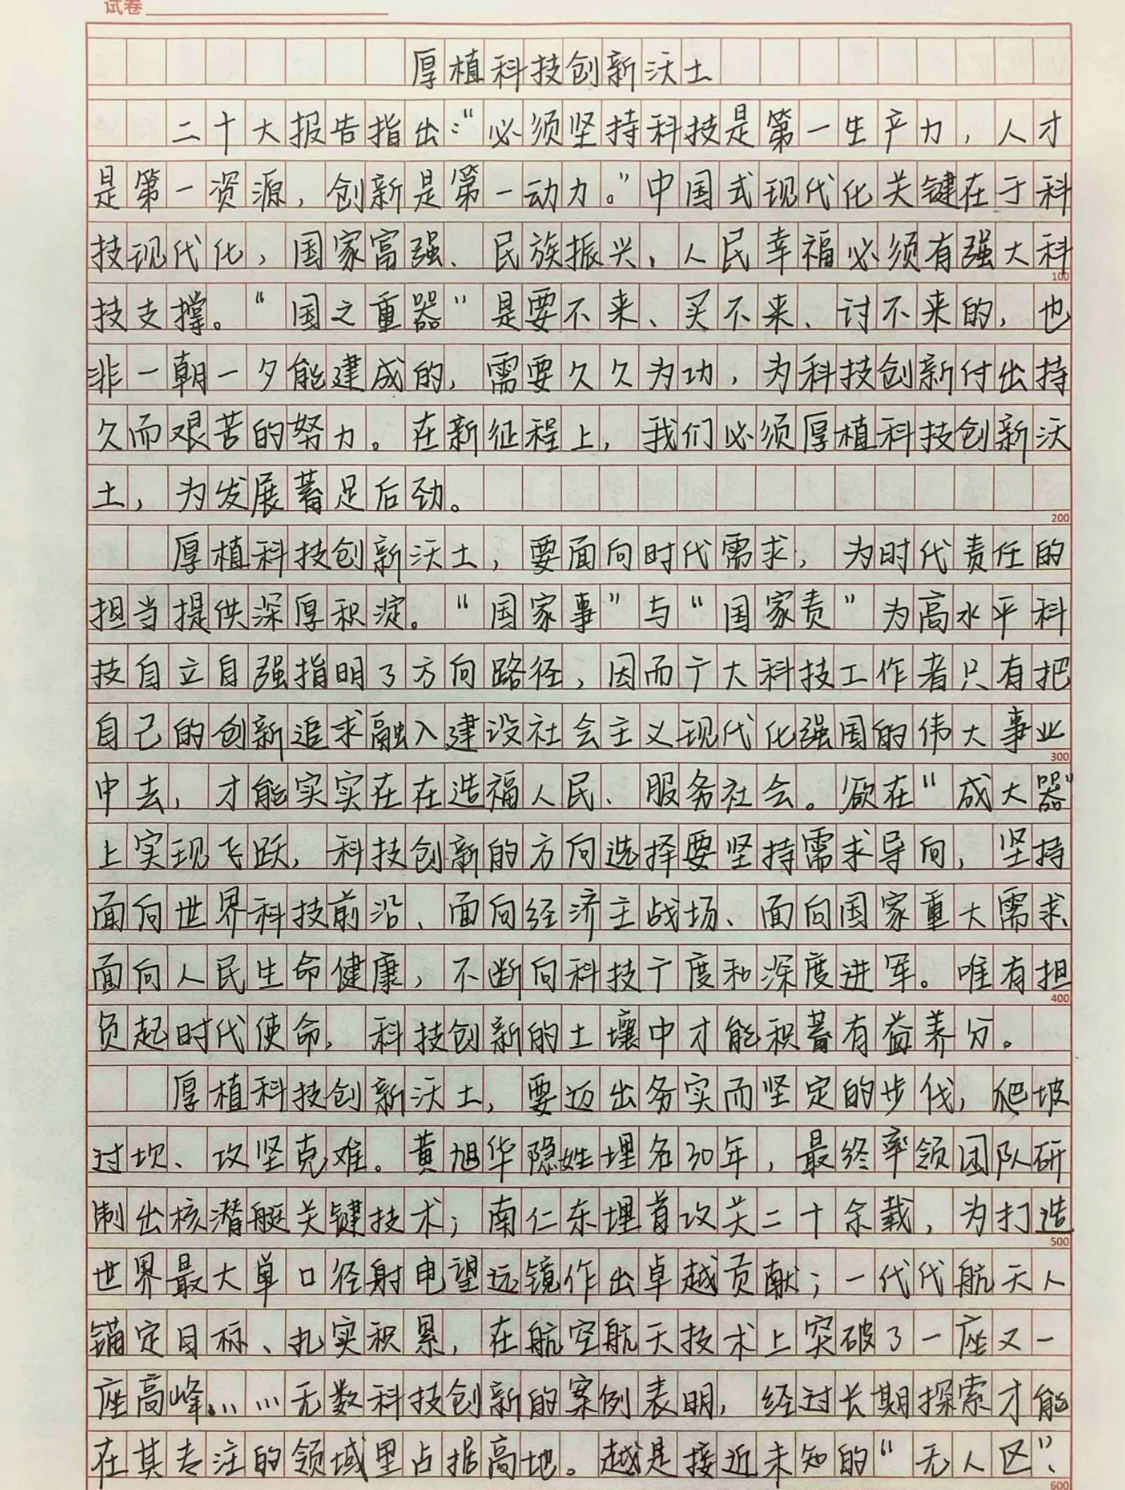 试卷
厚植科技创新沃土
二十大报告指出:“必须坚持科技是第一生产力,人才
是第一资源,创新是第一动力。”中国式现代化关键在于科
技现代化,国家富强、民族振兴,人民幸福必须有强大科
100
技支撑。“国之重器”是要不来、买不来、讨不来的,也
非一朝一夕能建成的,需要久久为功,为科技创新付出持
久而艰苦的努力。在新征程上,我们必须厚植科技创新沃
土,为发展蓄足后劲。
200
厚植科技创新沃土,要面向时代需求,为时代责任的
担当提供深厚积淀。“国家事”与“国家责”为高水平科
技自立自强指明了方向路径,因而广大科技工作者只有把
自己的创新追求融入建设社会主义现代化强国的伟大事业
300
中去,才能实实在在造福人民、服务社会。欲在“成大器”
上实现飞跃,科技创新的方向选择要坚持需求导向,坚持
面向世界科技前沿、面向经济主战场、面向国家重大需求、
面向人民生命健康,不断向科技广度和深度进军。唯有担
400
负起时代使命,科技创新的土壤中才能积蓄有益养分。
厚植科技创新沃土,要迈出务实而坚定的步伐,爬坡
过坎、攻坚克难。黄旭华隐姓埋名30年,最终率领团队研
制出核潜艇关键技术;南仁东埋首攻关二十余载,为打造
500
世界最大单口径射电望远镜作出卓越贡献;一代代航天人
锚定目标、扎实积累,在航空航天技术上突破了一座又一
座高峰……无数科技创新的案例表明,经过长期探索才能
在其专注的领域里占据高地。越是接近未知的“无人区”、
600